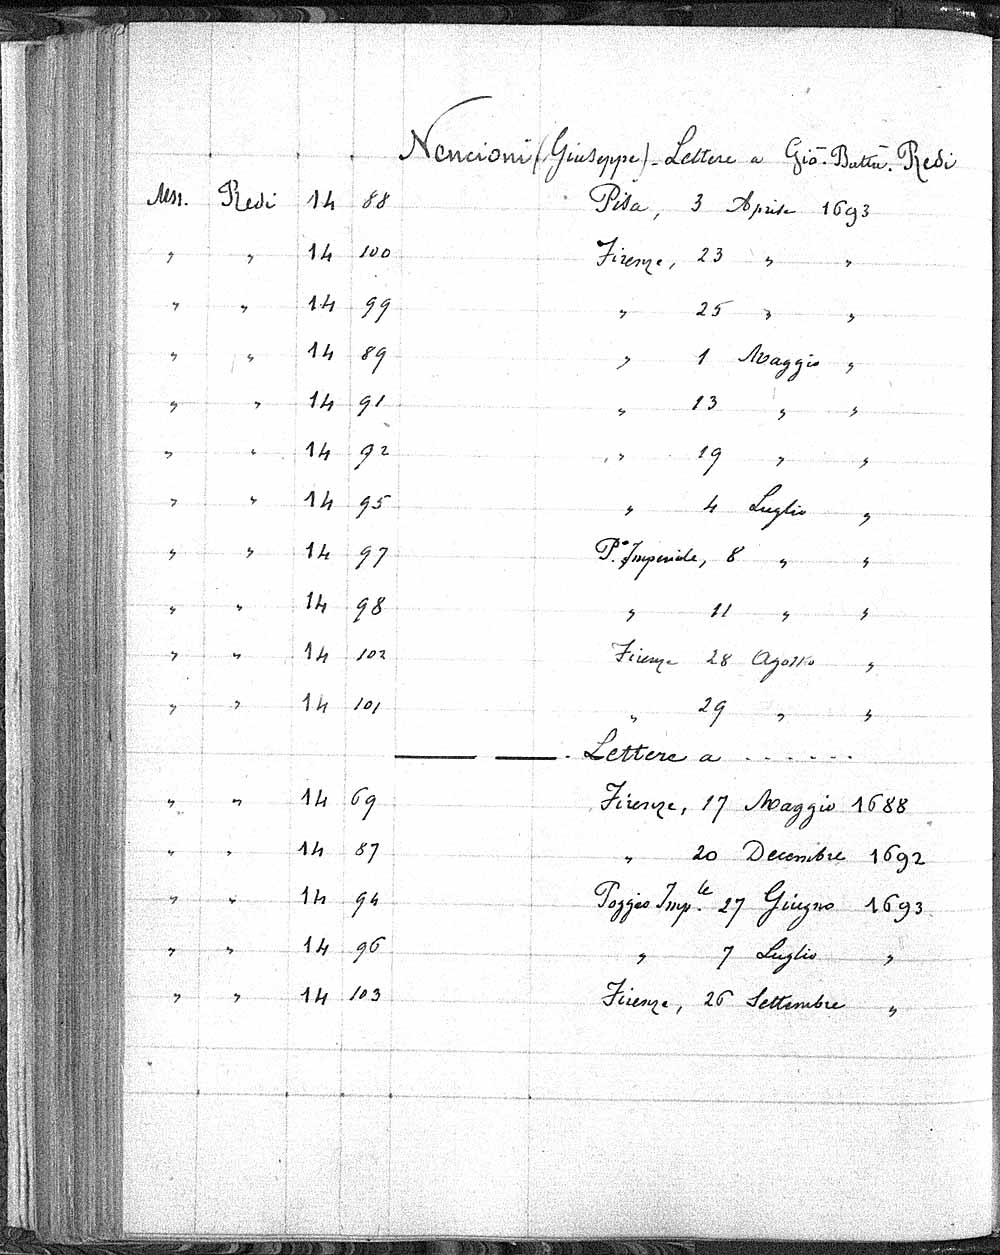 Nencioni (Giuseppe) - Lettere a Gio. Batta. Redi
Mss. Redi 14 88 Pisa, 3 Aprile 1693
" " 14 100 Firenze, 23 " "
" " 14 99 " 25 " "
" " 14 89 " 1 Maggio "
" " 14 91 " 13 " "
" " 14 92 " 19 " "
" " 14 95 " 4 Luglio "
" " 14 97 P.o Imperiale, 8 " "
" " 14 98 " 11 " "
" " 14 102 Firenze 28 Agosto "
" " 14 101 " 29 " "
—— —— . Lettere a . . . . . .
" " 14 69 Firenze, 17 Maggio 1688
" " 14 87 " 20 Decembre 1692
" " 14 94 Poggio Imp.le 27 Giugno 1693
" " 14 96 " 7 Luglio "
" " 14 103 Firenze, 26 Settembre "